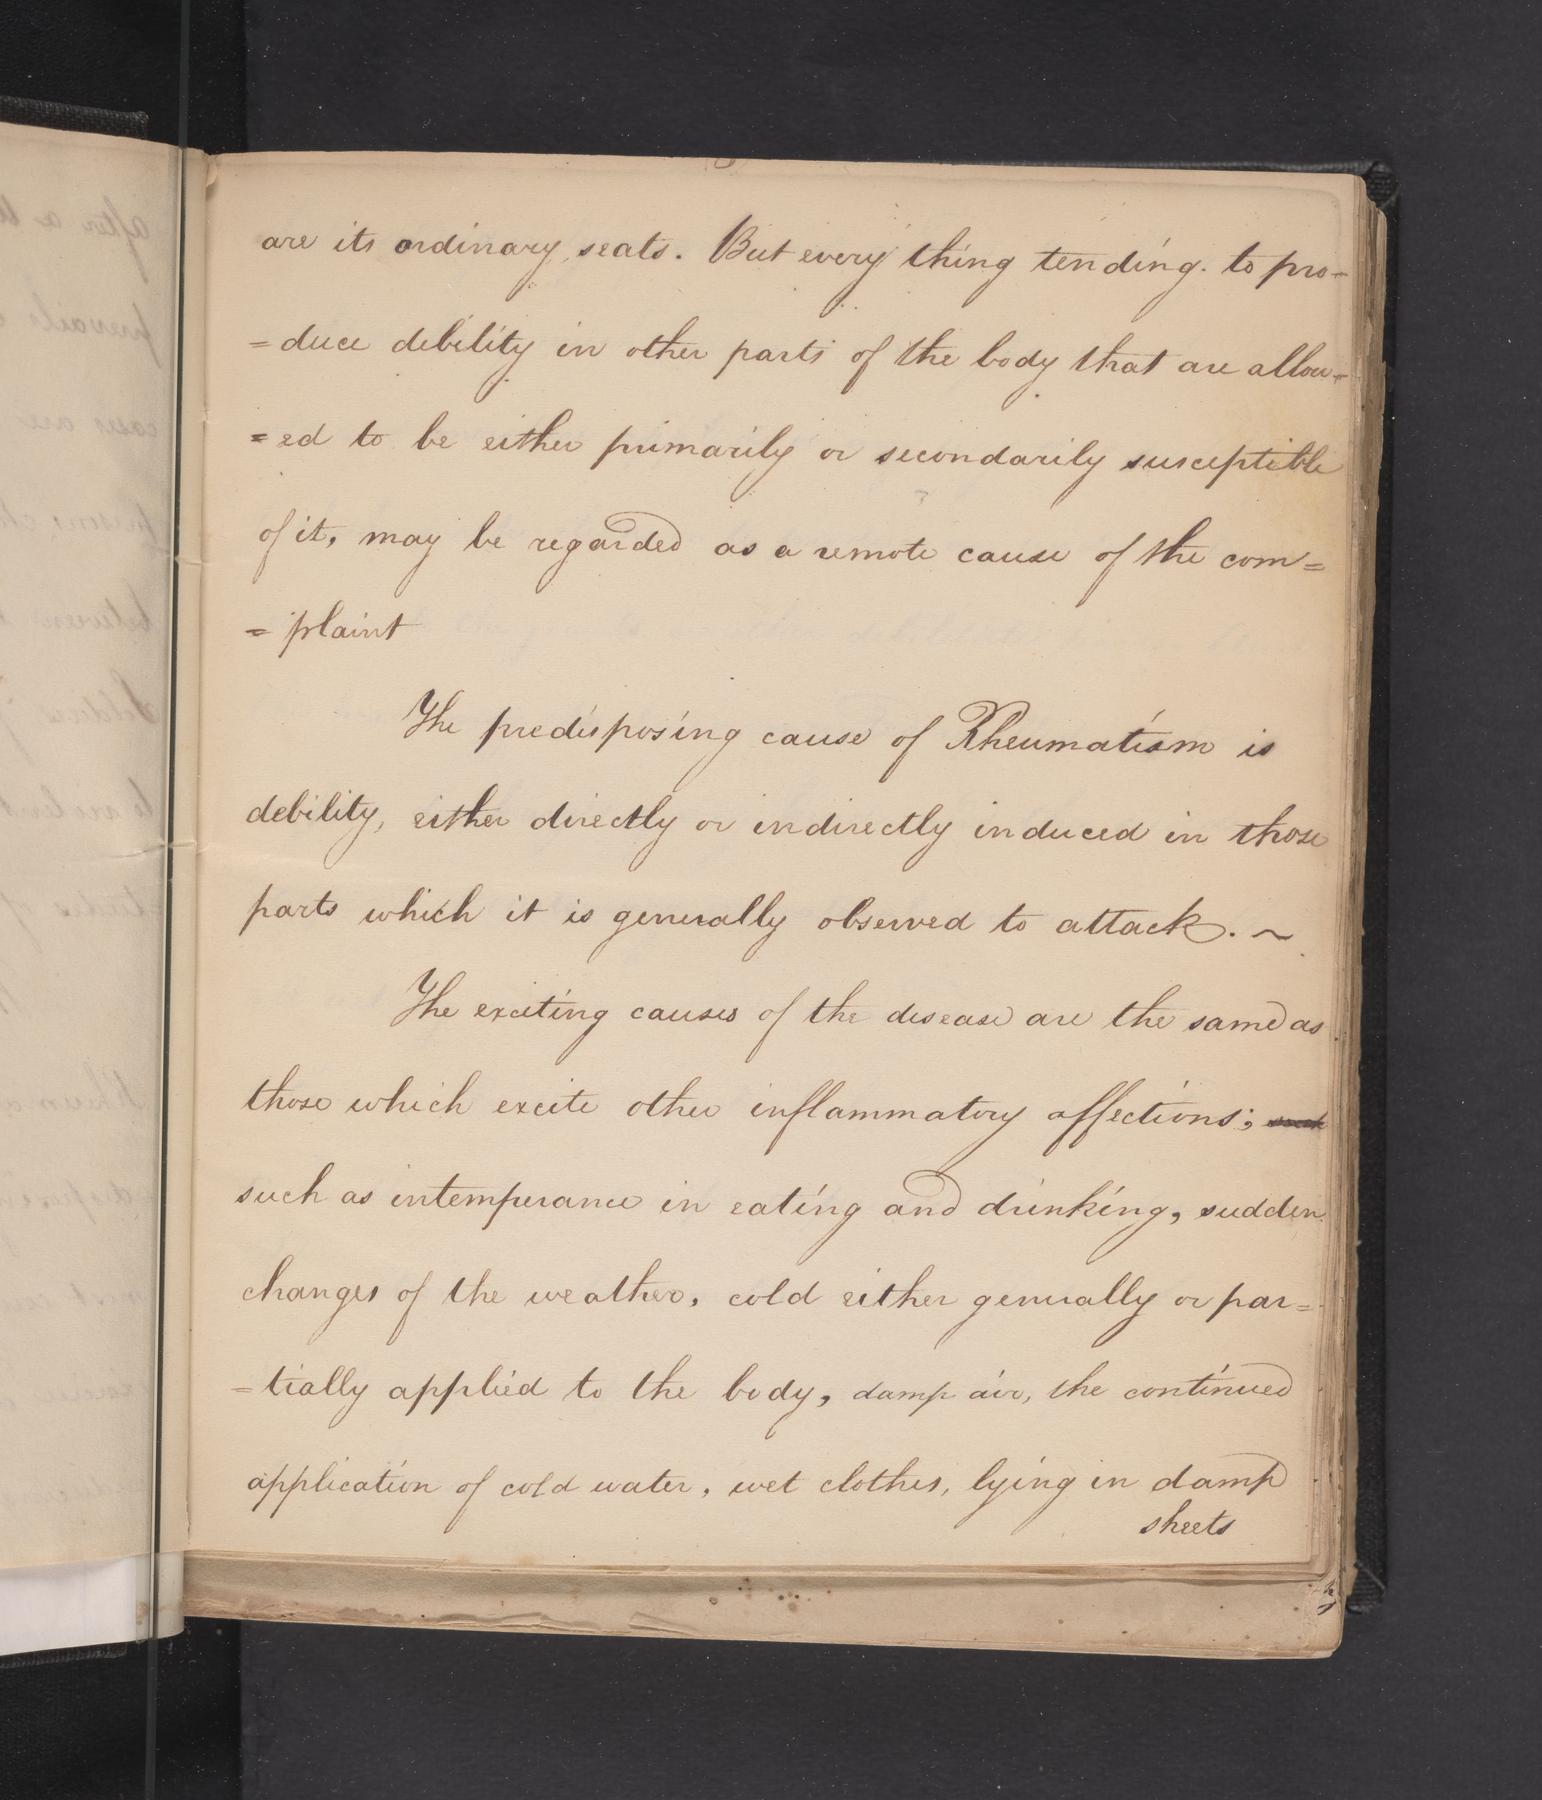 are its ordinary seats. But every thing tending to pro-
=duce debility in other parts of the body that are allow-
=ed to be either primarily or secondarily susceptible
of it, may be regarded as a remote cause of the com=
=plaint
The predisposing cause of Rheumatism is
debility, either directly or indirectly induced in those
parts which it is generally observed to attack. ~
The exciting causes of the disease are the same as
those which excite other inflammatory affections;
such as intemperance in eating and drinking, sudden
changes of the weather, cold either generally or par=
=tially applied to the body, damp air, the continued
application of cold water, wet clothes, lying in damp
sheets